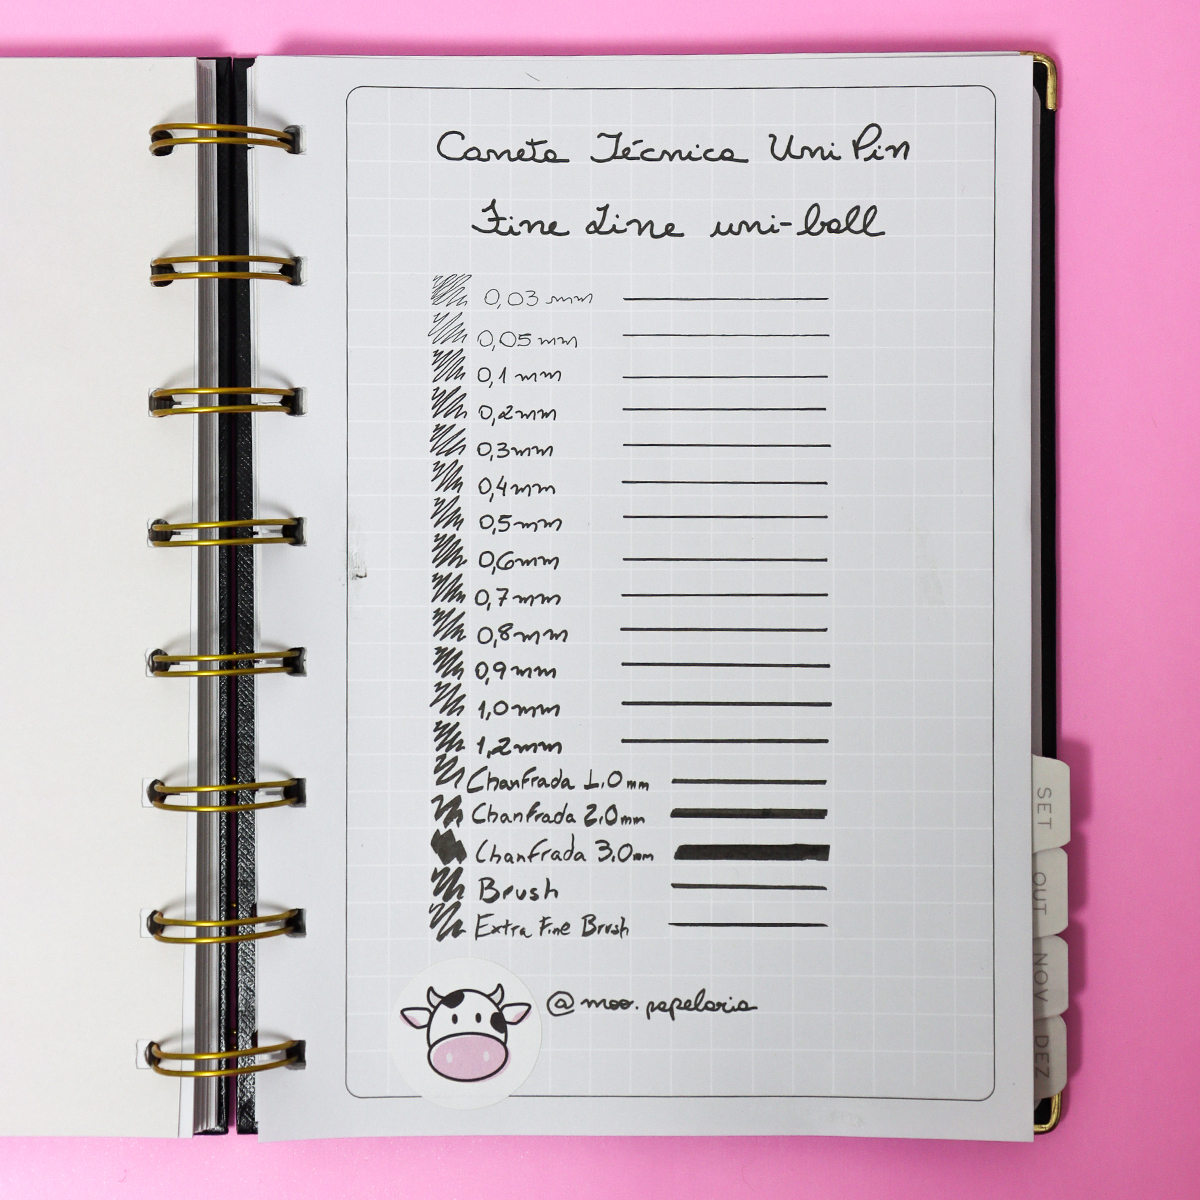 Caneta Técnica Uni Pin
Fine Line uni-ball
0,03 mm
0,05 mm
0,1 mm
0,2 mm
0,3 mm
0,4 mm
0,5 mm
0,6 mm
0,7 mm
0,8 mm
0,9 mm
1,0 mm
1,2 mm
Chanfrada 1.0 mm
Chanfrada 2.0 mm
Chanfrada 3.0 mm
Brush
Extra Fine Brush
@moo.papelaria
SET
OUT
NOV
DEZ